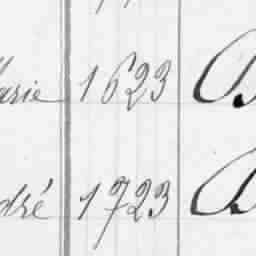 Marie 1623
dré 1723